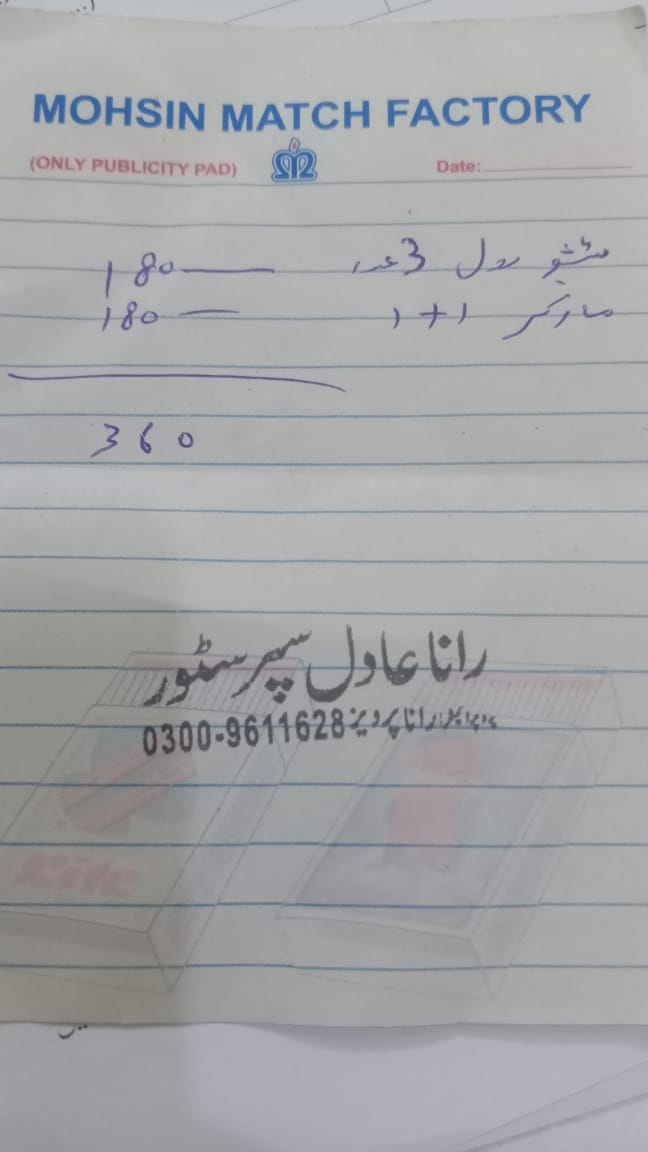 MOHSIN MATCH FACTORY
(ONLY PUBLICITY PAD) Date:
ٹشو رول 3 عدد — 180
مارکر 1+1 — 180
360
رانا عادل سپر سٹور
رانا پرویز 0300-9611628
Kite